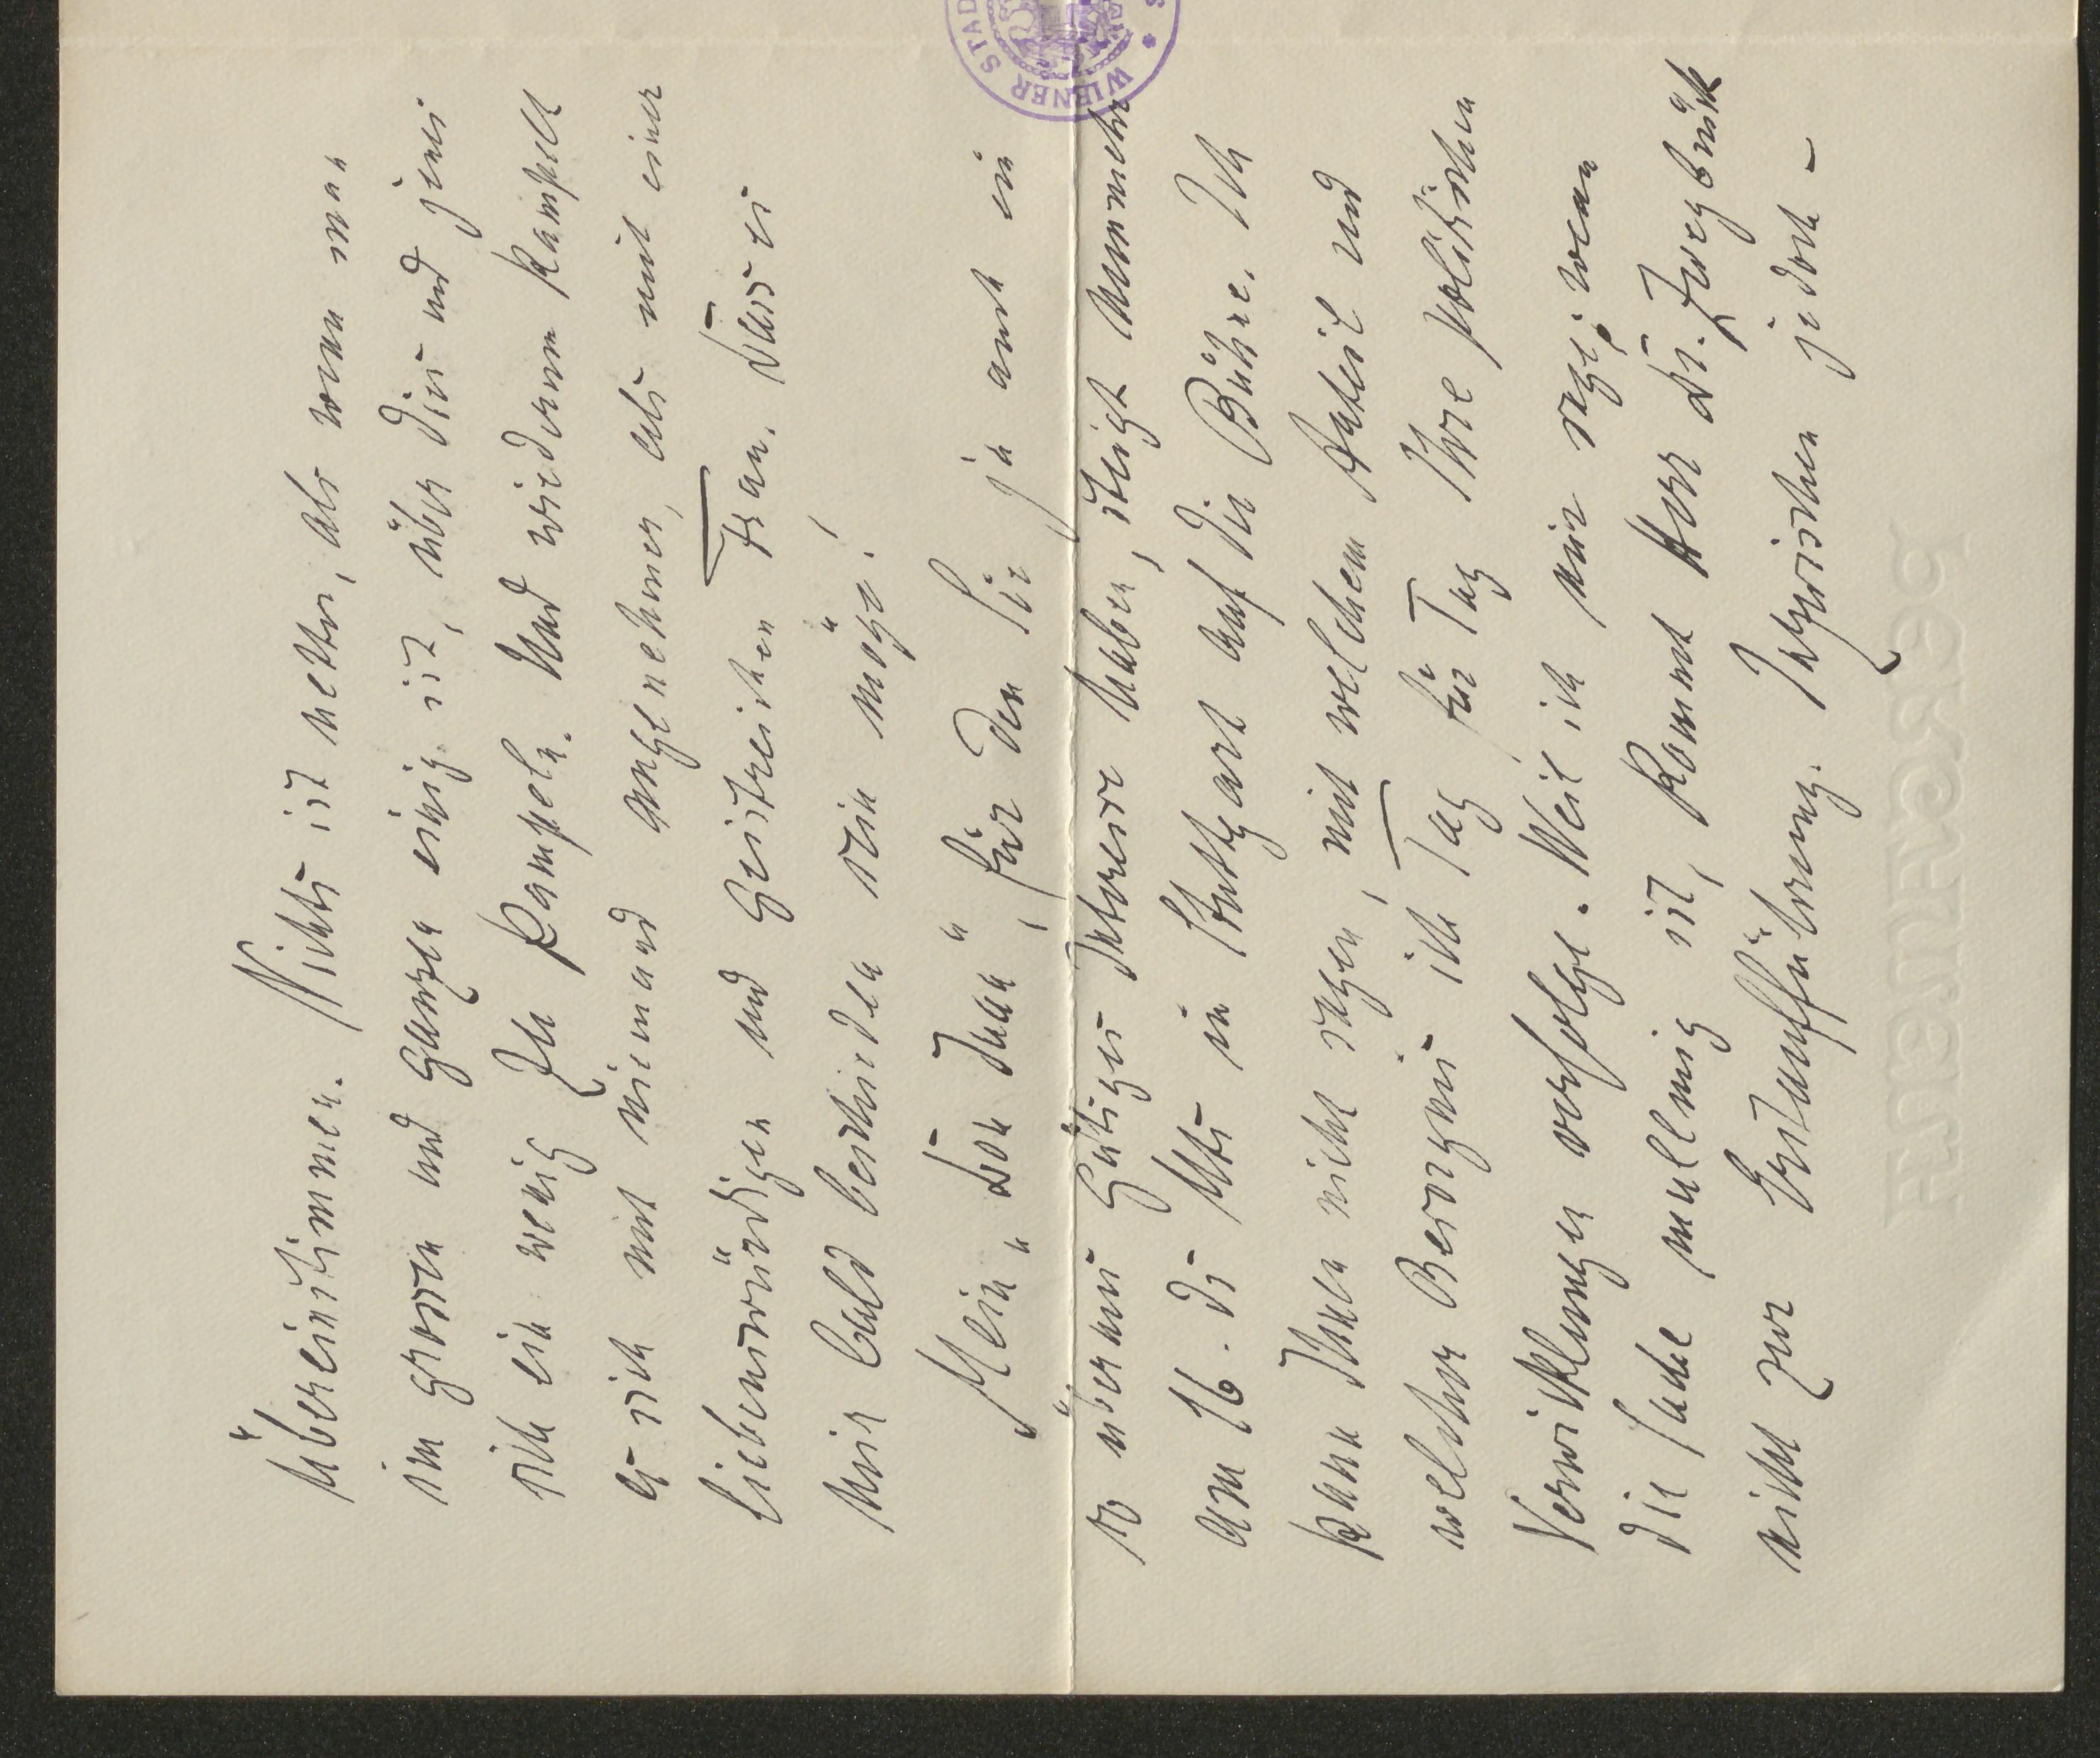 übereinstimmen. Nichts ist netter, als wenn man
im grossen und ganzen einig ist, über dies und jenes
sich ein wenig zu kampeln. Und wiederum kampelt
es sich mit niemand angenehmer, als mit einer
liebenswürdigen und geistreichen Frau. Dass es
mir bald beschieden sein möge!
Mein „Don Juan“, für den Sie ja auch ein
so überaus gütiges Interesse haben, steigt nunmehr
am 16. ds Mts in Stuttgart auf die Bühne. Ich
kann Ihnen nicht sagen, mit welchem Anteil und
welcher Besorgnis ich Tag für Tag Ihre politischen
Verwicklungen verfolge. Weil ich mir sage: wenn
die Sache mullmig ist, kommt Herr Dr. Zweybrück
nicht zur Erstaufführung. Inzwischen jedoch –
WIENER STAD
PERGAMENT